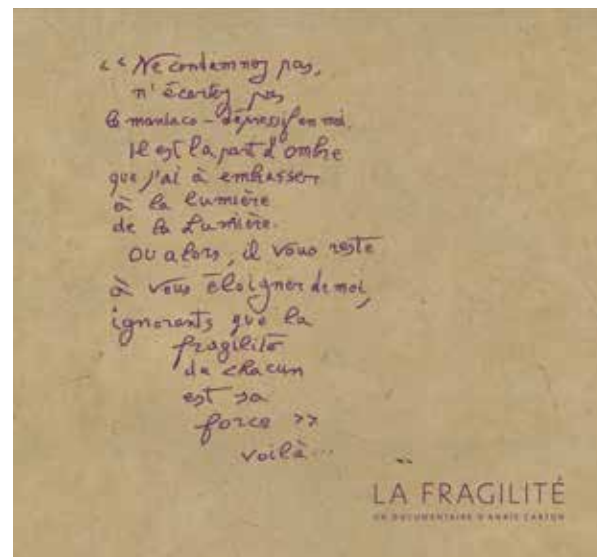 << Ne condamnez pas,
n'écartez pas
le maniaco-dépressif en moi.
Il est la part d'ombre
que j'ai à embrasser
à la lumière
de la Lumière.
OU alors, il vous reste
à vous éloigner de moi,
ignorants que la
fragilité
de chacun
est sa
force >>
voilà...
LA FRAGILITÉ
UN DOCUMENTAIRE D'ANNIE CARTON